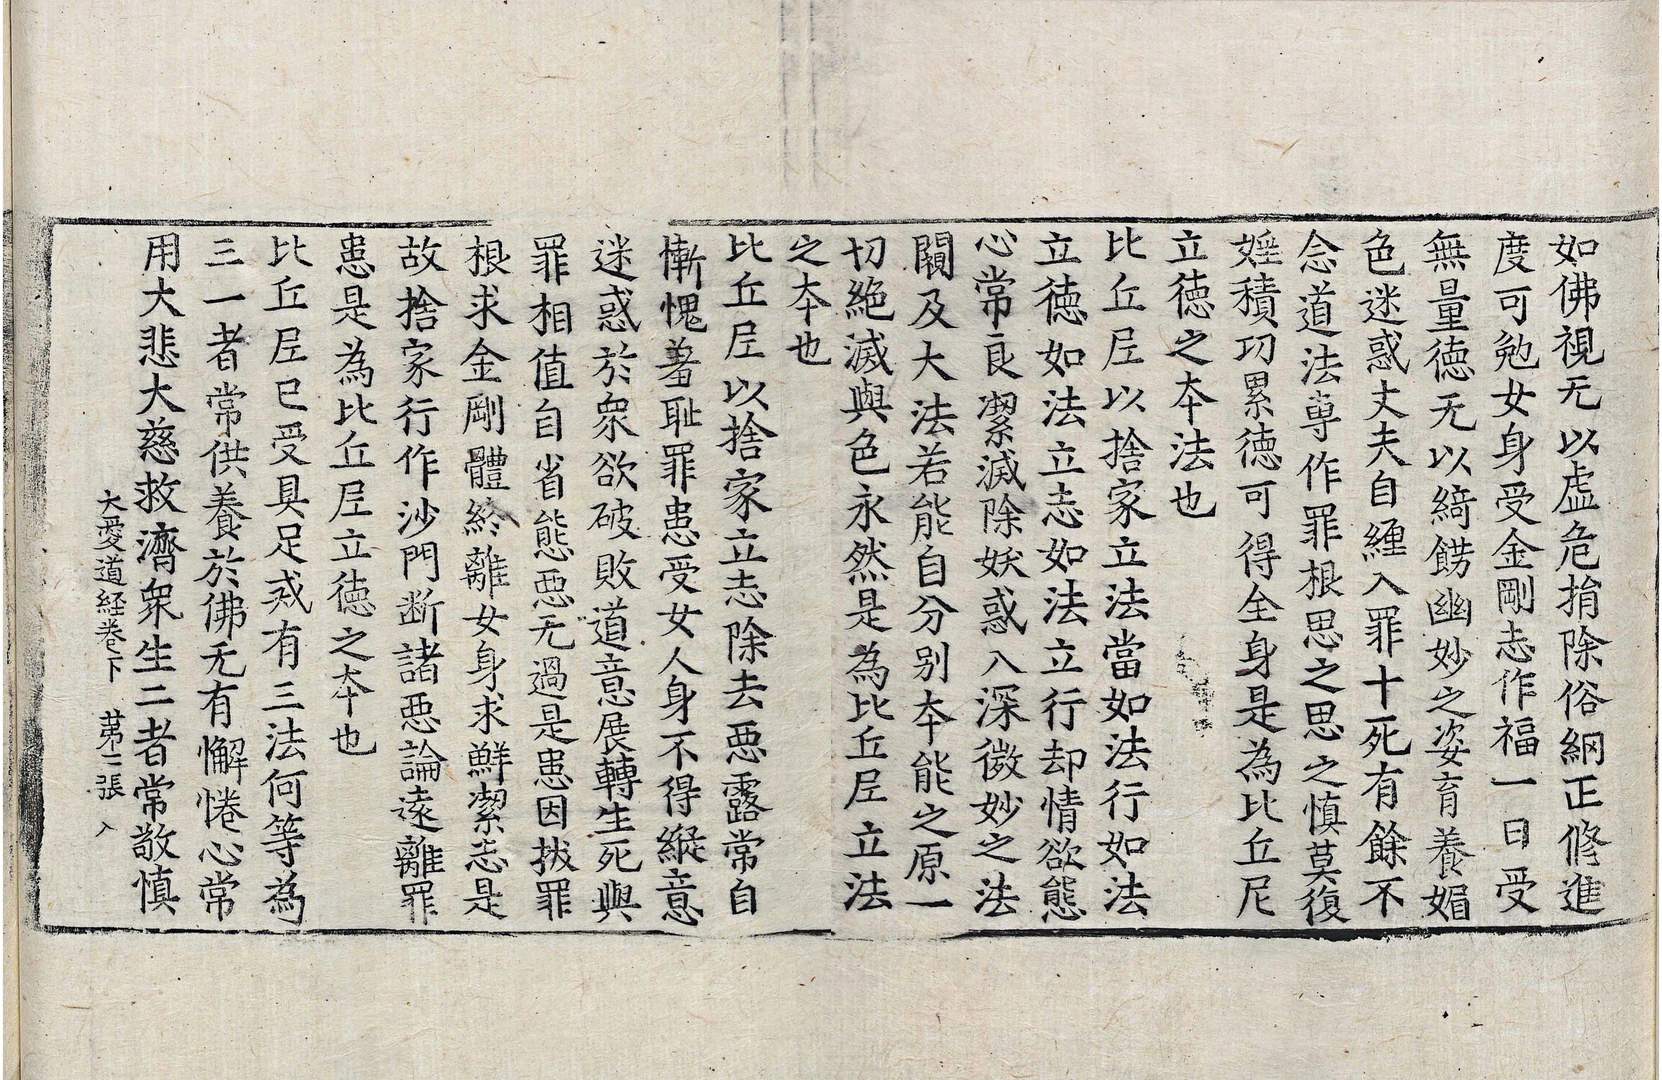 如佛視无以虛危捐除俗網正修進
度可勉女身受金剛志作福一日受
無量德无以綺餝幽妙之姿育養媚
色迷惑丈夫自纏入罪十死有餘不
念道法専作罪根思之思之慎莫復
婬積功累德可得全身是為比丘尼
立徳之夲法也
比丘尼以捨家立法當如法行如法
立徳如法立志如法立行却情欲態
心常良潔滅除妖惑入深微妙之法
關及大法若能自分别夲能之原一
切絶滅與色永然是為比丘尼立法
之夲也
比丘尼以捨家立志除去惡露常自
慚愧羞耻罪患受女人身不得縱意
迷惑於衆欲破敗道意展轉生死與
罪相值自省態惡无過是患因拔罪
根求金剛體終離女身求鮮潔志是
故捨家行作沙門断諸惡論遠離罪
患是為比丘尼立徳之夲也
比丘尼已受具足戒有三法何等為
三一者常供養於佛无有懈惓心常
用大悲大慈救濟衆生二者常敬慎
大愛道経卷下 苐二張 入